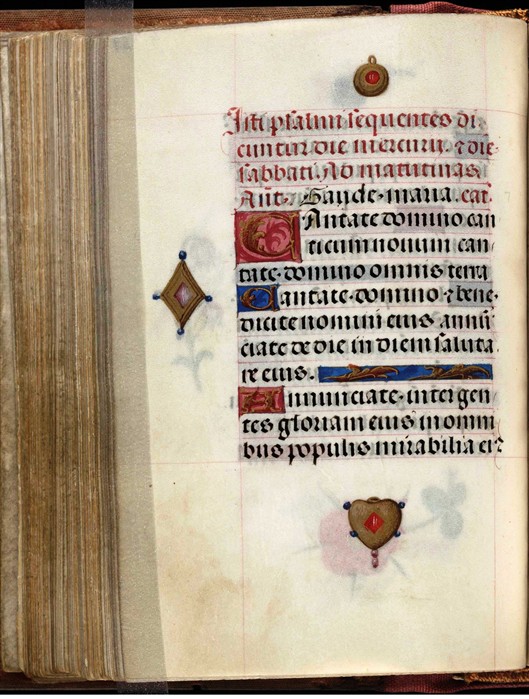 Isti psalmi sequentes di
cuntur die mercurii. ⁊ die
sabbati. Ad matutinas
Añt. Gaude maria. cat.
Cantate domino can
ticum nouum can
tate domino omnis terra
Cantate domino ⁊ bene
dicite nomini eius annũ
ciate de die in diem saluta
re eius.
Annunciate inter gen
tes gloriam eius in omni
bus populis mirabilia ei⁹